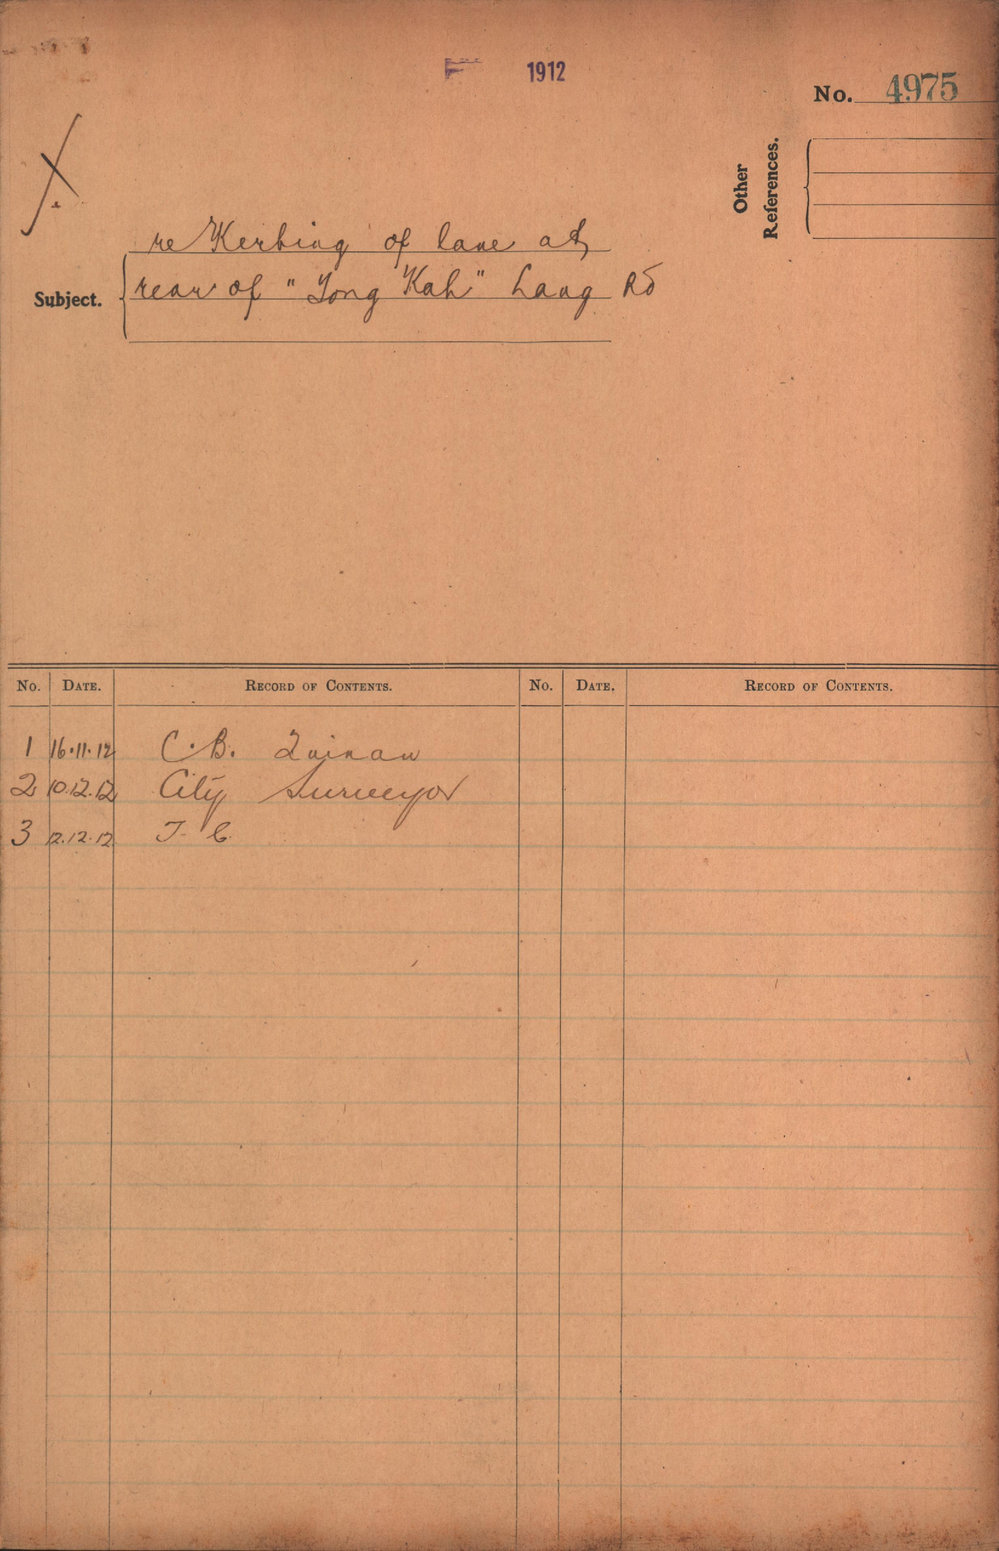 1912
No. 4975
Other References.
re Kerbing of lane at
Subject. rear of "Tong Kah" Lang Rd
No. DATE. RECORD OF CONTENTS. No. DATE. RECORD OF CONTENTS.
1 16.11.12 C.B. Quinan
2 10.12.12 City Surveyor
3 12.12.12 T C